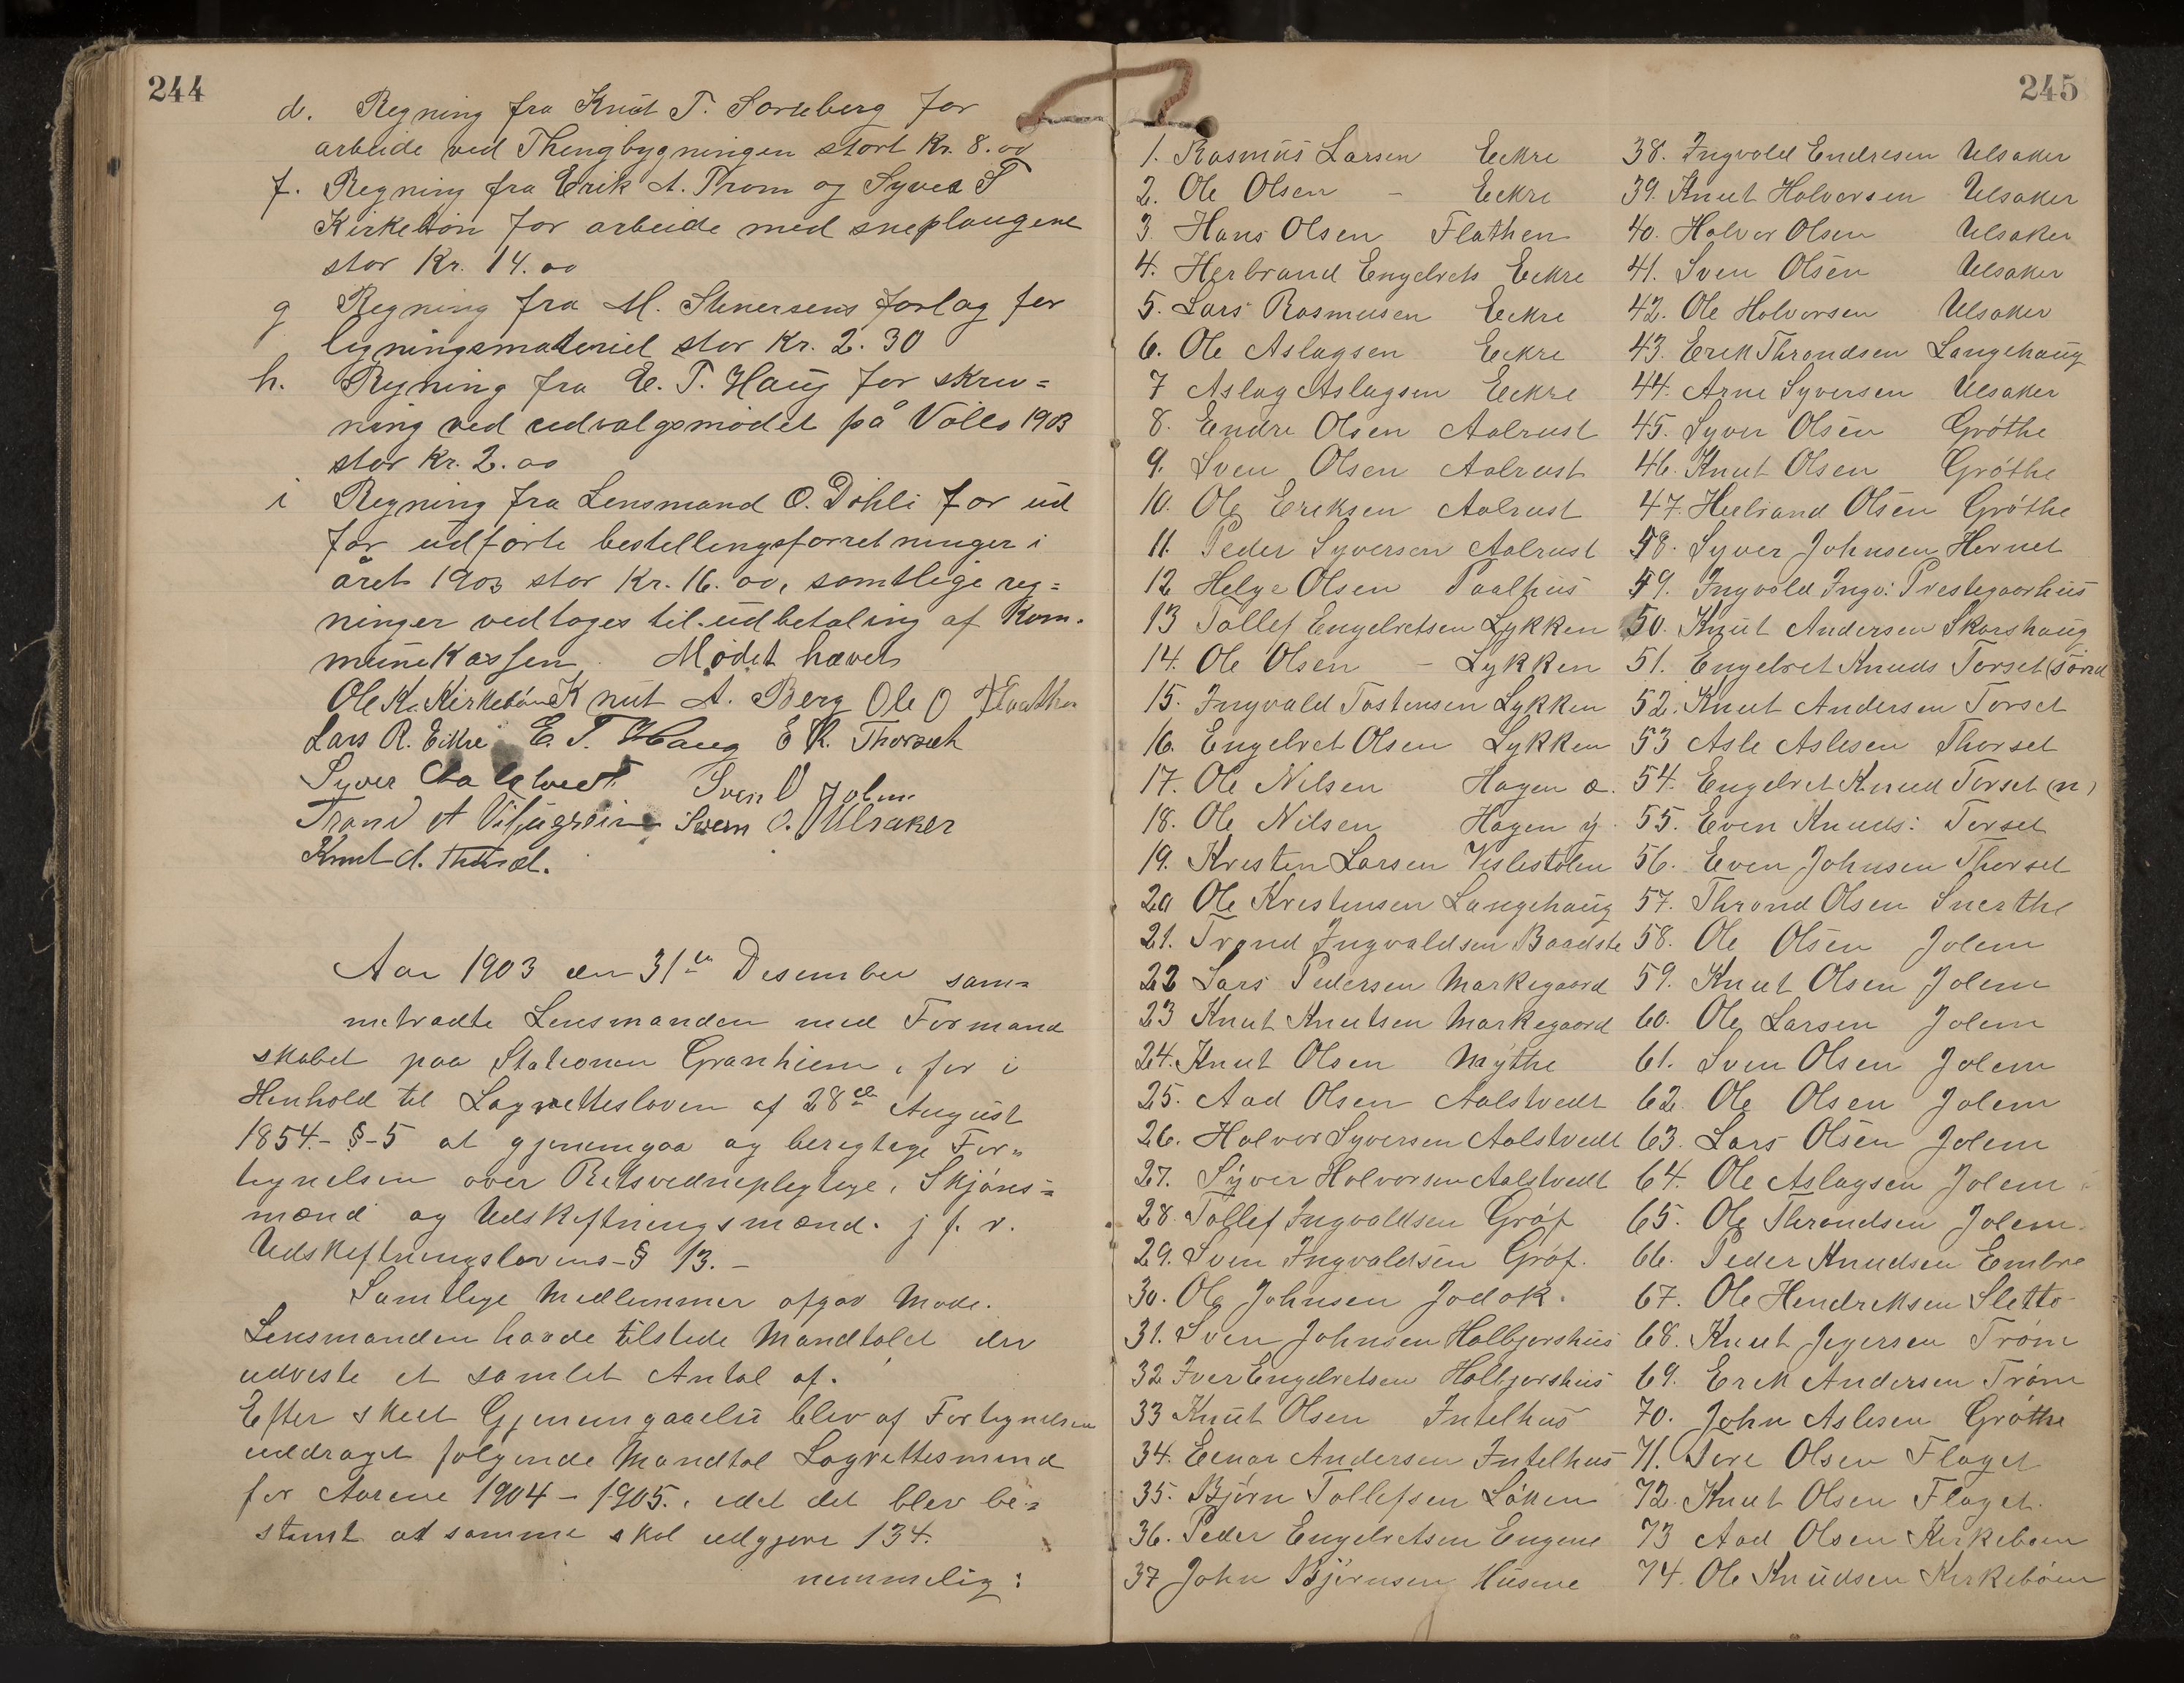 244
d. Regning fra Knut T. Sorteberg for
arbeide ved Thingbygningen stort Kr. 8.00
f. Regning fra Erik A. Trom og Syver T
Kirkebön for arbeide med sneplougene
stor Kr. 14.00
g Regning fra M. Stenersens forlag for
ligningsmateriel stor Kr. 2.30
h. Regning fra E. T. Haug for skriv=
ning ved udvalgsmödet på Völlo 1903
stor Kr. 2.00
i Regning fra Lensmand O. Döhli for ud
for udförte bestellingsforretninger i
året 1903 stor Kr. 16.00, samtlige reg=
ninger vedtoges til udbetaling af Kom.
munekassen. Mödet hævet
Ole K. Kirkebön Knut A. Berg Ole O Flaathen
Lars R. Eikre E. T. Haug E K. Thorset
Syver Aalstvedt Sven O Jolm
Trond A Viljugrein Svein O. Ulsaker
Knut A.
Aar 1903 den 31te Desember sam=
metradte Lensmanden med Formand
skabet paa Stationen Granhiem, for i
Henhold til Lagrettesloven af 28de August
1854-§-5 at gjenemgaa og berigtige For=
tegnelsen over Retsvednepligtige, Skjöns=
mænd og Udskiftningsmænd. j f. v.
Udskiftningslovens-§ 13.-
Samtlige Medlemmer afgav Möde.
Lensmanden havde tilstede Mandtalet der
udviste et samlet Antal af.
Efter skeet Gjenemgaaelse blev af Fortegnelsen
uddraget fölgende Mandtal Lagrettesmend
for Aarene 1904-1905., idet det blev be=
stemt at samme skal udgjöre 134.
nemmelig:
245
1. Rasmus Larsen Eekre
2. Ole Olsen - Eekre
3. Hans Olsen Flathen
4. Herbrand Engebrets Eekre
5. Lars Rasmusen Eekre
6. Ole Aslagsen Eekre
7 Aslag Aslagsen Eekre
8. Endre Olsen Aalrust
9. Sven Olsen Aalrust
10. Ole Eriksen Aalrust
11. Peder Syversen Aalrust
12 Helge Olsen Paalhus
13 Tollef Engebretsen Lykken
14. Ole Olsen - Lykken
15. Ingvald Tostensen Lykken
16. Engebret Olsen Lykken
17. Ole Nilsen Hagen æ.
18. Ole Nilsen Hagen y.
19. Kristen Larsen Veslestölen
20 Ole Kristensen Langehaug
21. Trond Ingvaldsen Baadste
22 Lars Pedersen Markegaard
23 Knut Knutsen Markegaard
24. Knut Olsen Mythe
25. Aad Olsen Aalstvedt
26. Halvor Syversen Aalstvedt
27. Syver Halvorsen Aalstvedt
28. Tollef Ingvaldsen Gróf
29. Sven Ingvaldsen Gróf.
30. Ole Johnsen Jodok.
31. Sven Johnsen Halbjorshus
32 Iver Engebretsen Halbjorshus
33 Knut Olsen Intelhus
34. Eenar Andersen Intelhus
35. Björn Tollefsen Löken
36. Peder Engebretsen Engene
37 John Björnsen Husene
38. Ingvald Endresen Ulsaker
39. Knut Halvorsen Ulsaker
40. Halvor Olsen Ulsaker
41. Sven Olsen Ulsaker
42. Ole Halvorsen Ulsaker
43. Erik Throndsen Langehaug
44. Arne Syversen Ulsaker
45. Syver Olsen Gróthe
46. Knut Olsen Gróthe
47. Helbrand Olsen Gróthe
48. Syver Johnsen Hernet
49. Ingvald Ingv: Prestegaarhus
50. Knut Andersen Skarshaug
51. Engebret Knuds Torset (sönd
52. Knut Andersen Torset
53 Asle Aslesen Thorset
54. Engebret Knud Torset (n)
55. Even Knuds: Torset
56. Even Johnsen Thorset
57. Thrond Olsen Snerthe
58. Ole Olsen Jolem
59. Knut Olsen Jolem
60. Ole Larsen Jolem
61. Sven Olsen Jolem
62. Ole Olsen Jolem
63. Lars Olsen Jolem
64. Ole Aslagsen Jolem
65. Ole Throndsen Jolem.
66. Peder Knudsen Embre
67. Ole Hendriksen Sletto
68. Knut Jegersen Tröm
69. Erik Andersen Tröm
70. John Aslesen Gróthe
71. Tore Olsen Flaget
72. Knut Olsen Flaget.
73 Aad Olsen Kirkeböen
74. Ole Knudsen Kirkeböen